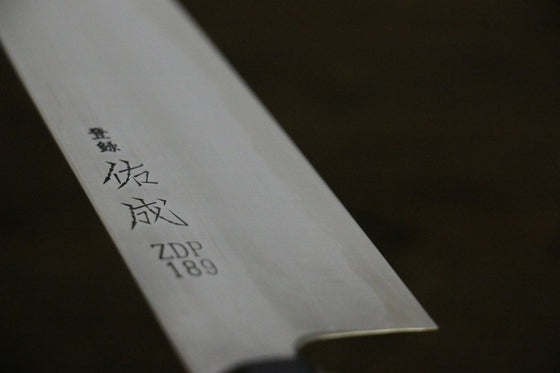 登録
佑成
ZDP
189